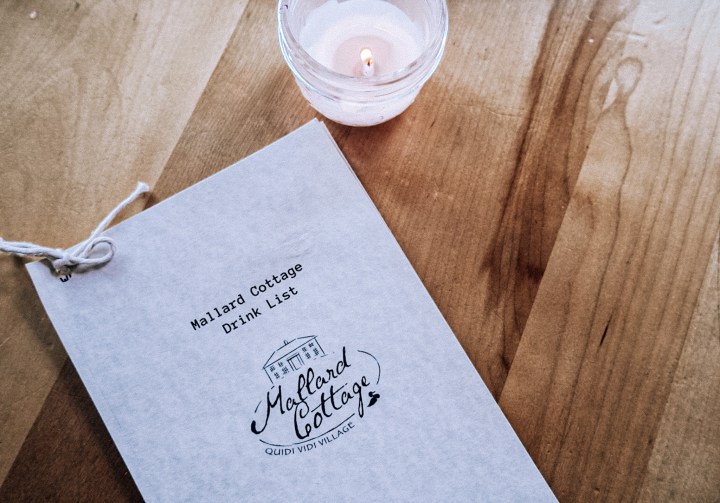 Mallard Cottage
Drink List
Mallard
Cottage
QUIDI VIDI VILLAGE